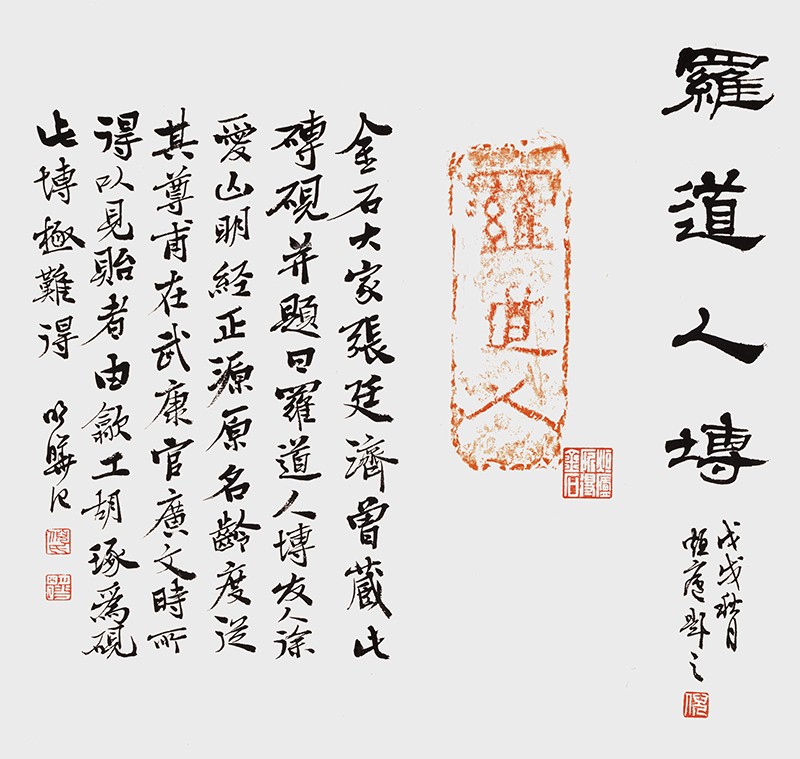 羅道人塼
戊戌秋月
題之
羅道人
金石大家張廷濟曾藏此
磚硯并題曰羅道人塼友人徐
愛山明經正源原名齡度從
其尊甫在武康官廣文時所
得以見貽者由歙工胡琢為硯
此塼極難得